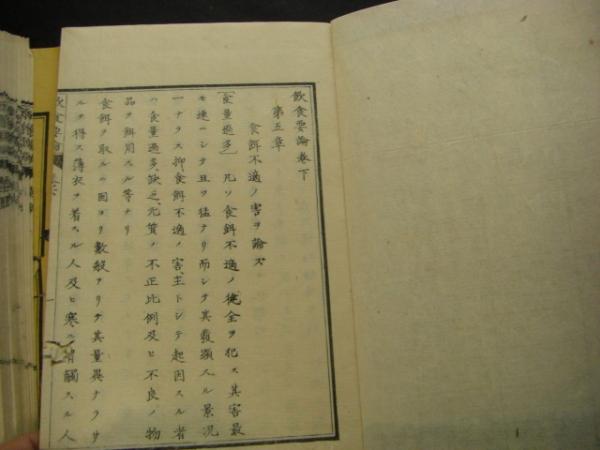 飲食要論巻下
第五章
食餌不適ノ害ヲ論ズ
[食量過多]凡ソ食餌不適ノ健全ヲ犯ス其害最
モ速ニシテ且ツ猛ナリ而シテ其発顕スル景况
一ナラス抑食餌不適ノ害主トシテ起因スル者
ハ食量過多、缺乏、元質ノ不正比例及ヒ不良ノ物
品ヲ餌用スル等ナリ
食餌ヲ取ルノ因ヨリ數般アリテ其量異ナラサ
ルヲ得ス薄衣ヲ着スル人及ヒ寒ニ觸スル人
飲食要論